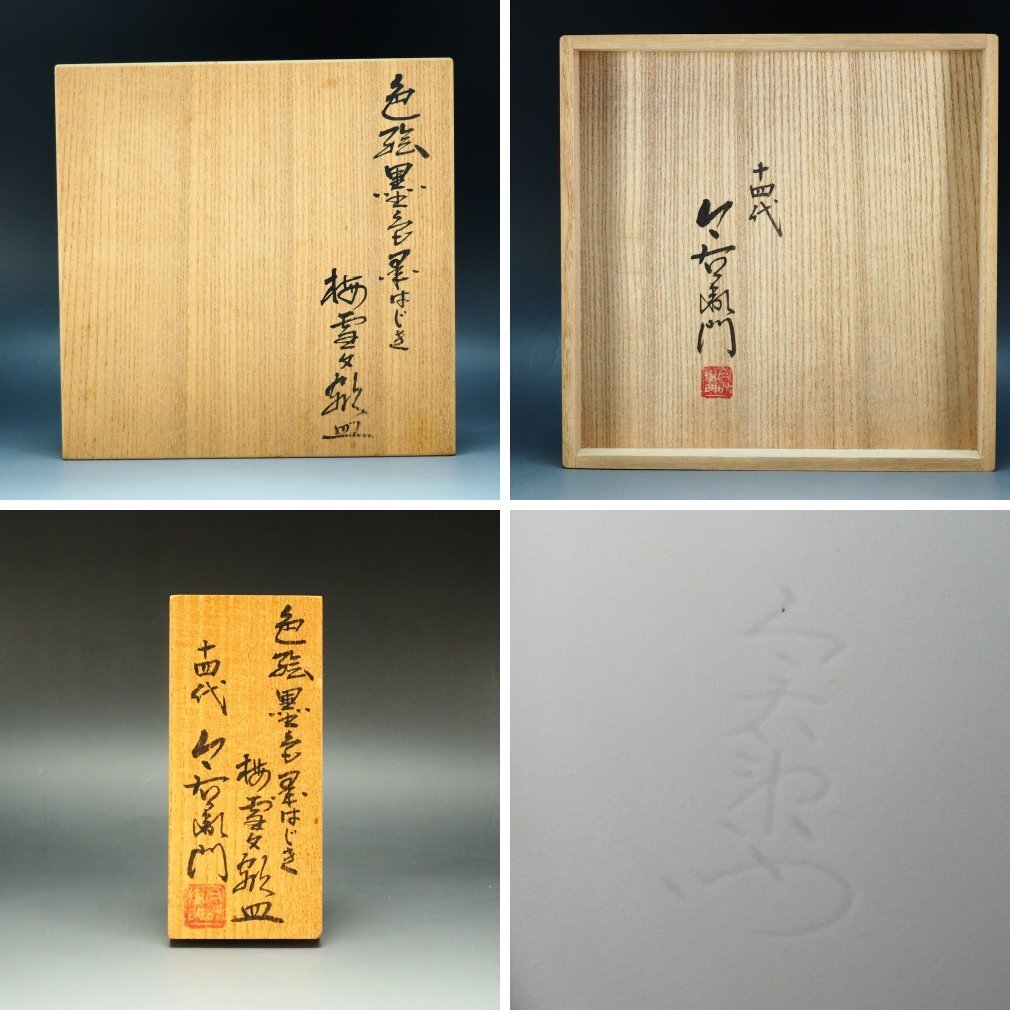 色絵墨色墨はじき
梅雪文額皿
十四代
今右衛門
色絵墨色墨はじき
梅雪文額皿
十四代
今右衛門
今右衛門